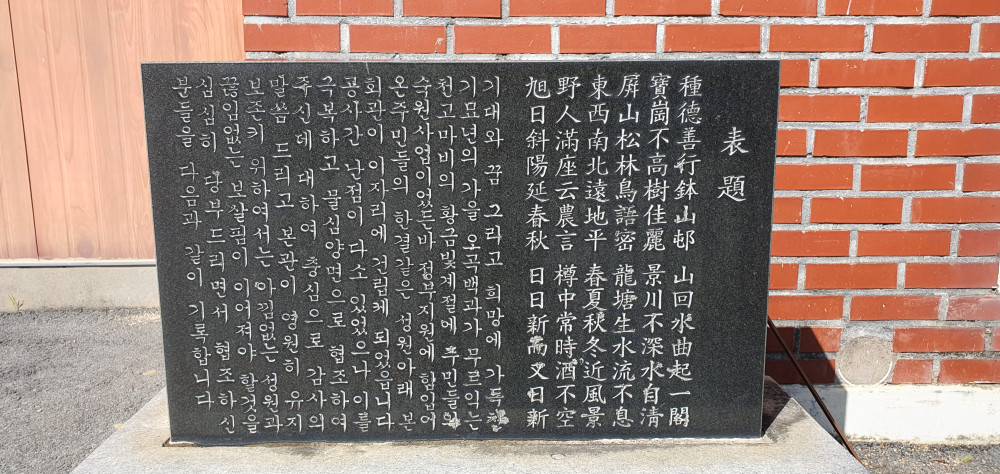 表題
種德善行鉢山邨 山回水曲起一閣
寶崗不高樹佳麗 景川不深水自清
屛山松林鳥語密 龍塘生水流不息
東西南北遠地平 春夏秋冬近風景
野人滿座云農言 樽中常時酒不空
旭日斜陽延春秋 日日新而又日新
기대와 꿈 그리고 희망에 가득찬
기묘년의 가을 오곡백과가 무르익는
천고마비의 황금빛계절에 부민들의
숙원사업이었든바 정부지원에 힘입어
온주민들의 한결같은 성원아래 본
회관이 이자리에 건립케 되었읍니다
공사간 난점이 다소 있었으나 이를
극복하고 물심양면으로 협조하여
주신데 대하여 충심으로 감사의
말씀 드리고 본관이 영원히 유지
보존키 위하여서는 아낌없는 성원과
끊임없는 보살핌이 이어져야 할것을
심심히 당부드리면서 협조하신
분들을 다음과 같이 기록합니다